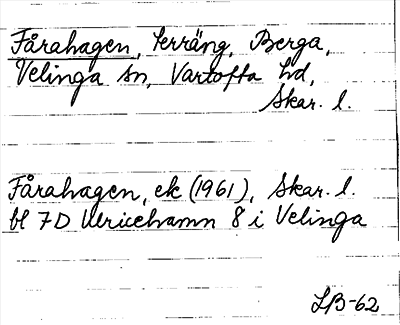 Fårahagen, terräng, Berga,
Velinga sn, Vartofta hd,
Skar. l.
Fårahagen, ek (1961), Skar. l.
bl 7D Ulricehamn 8 i Velinga
LB-62